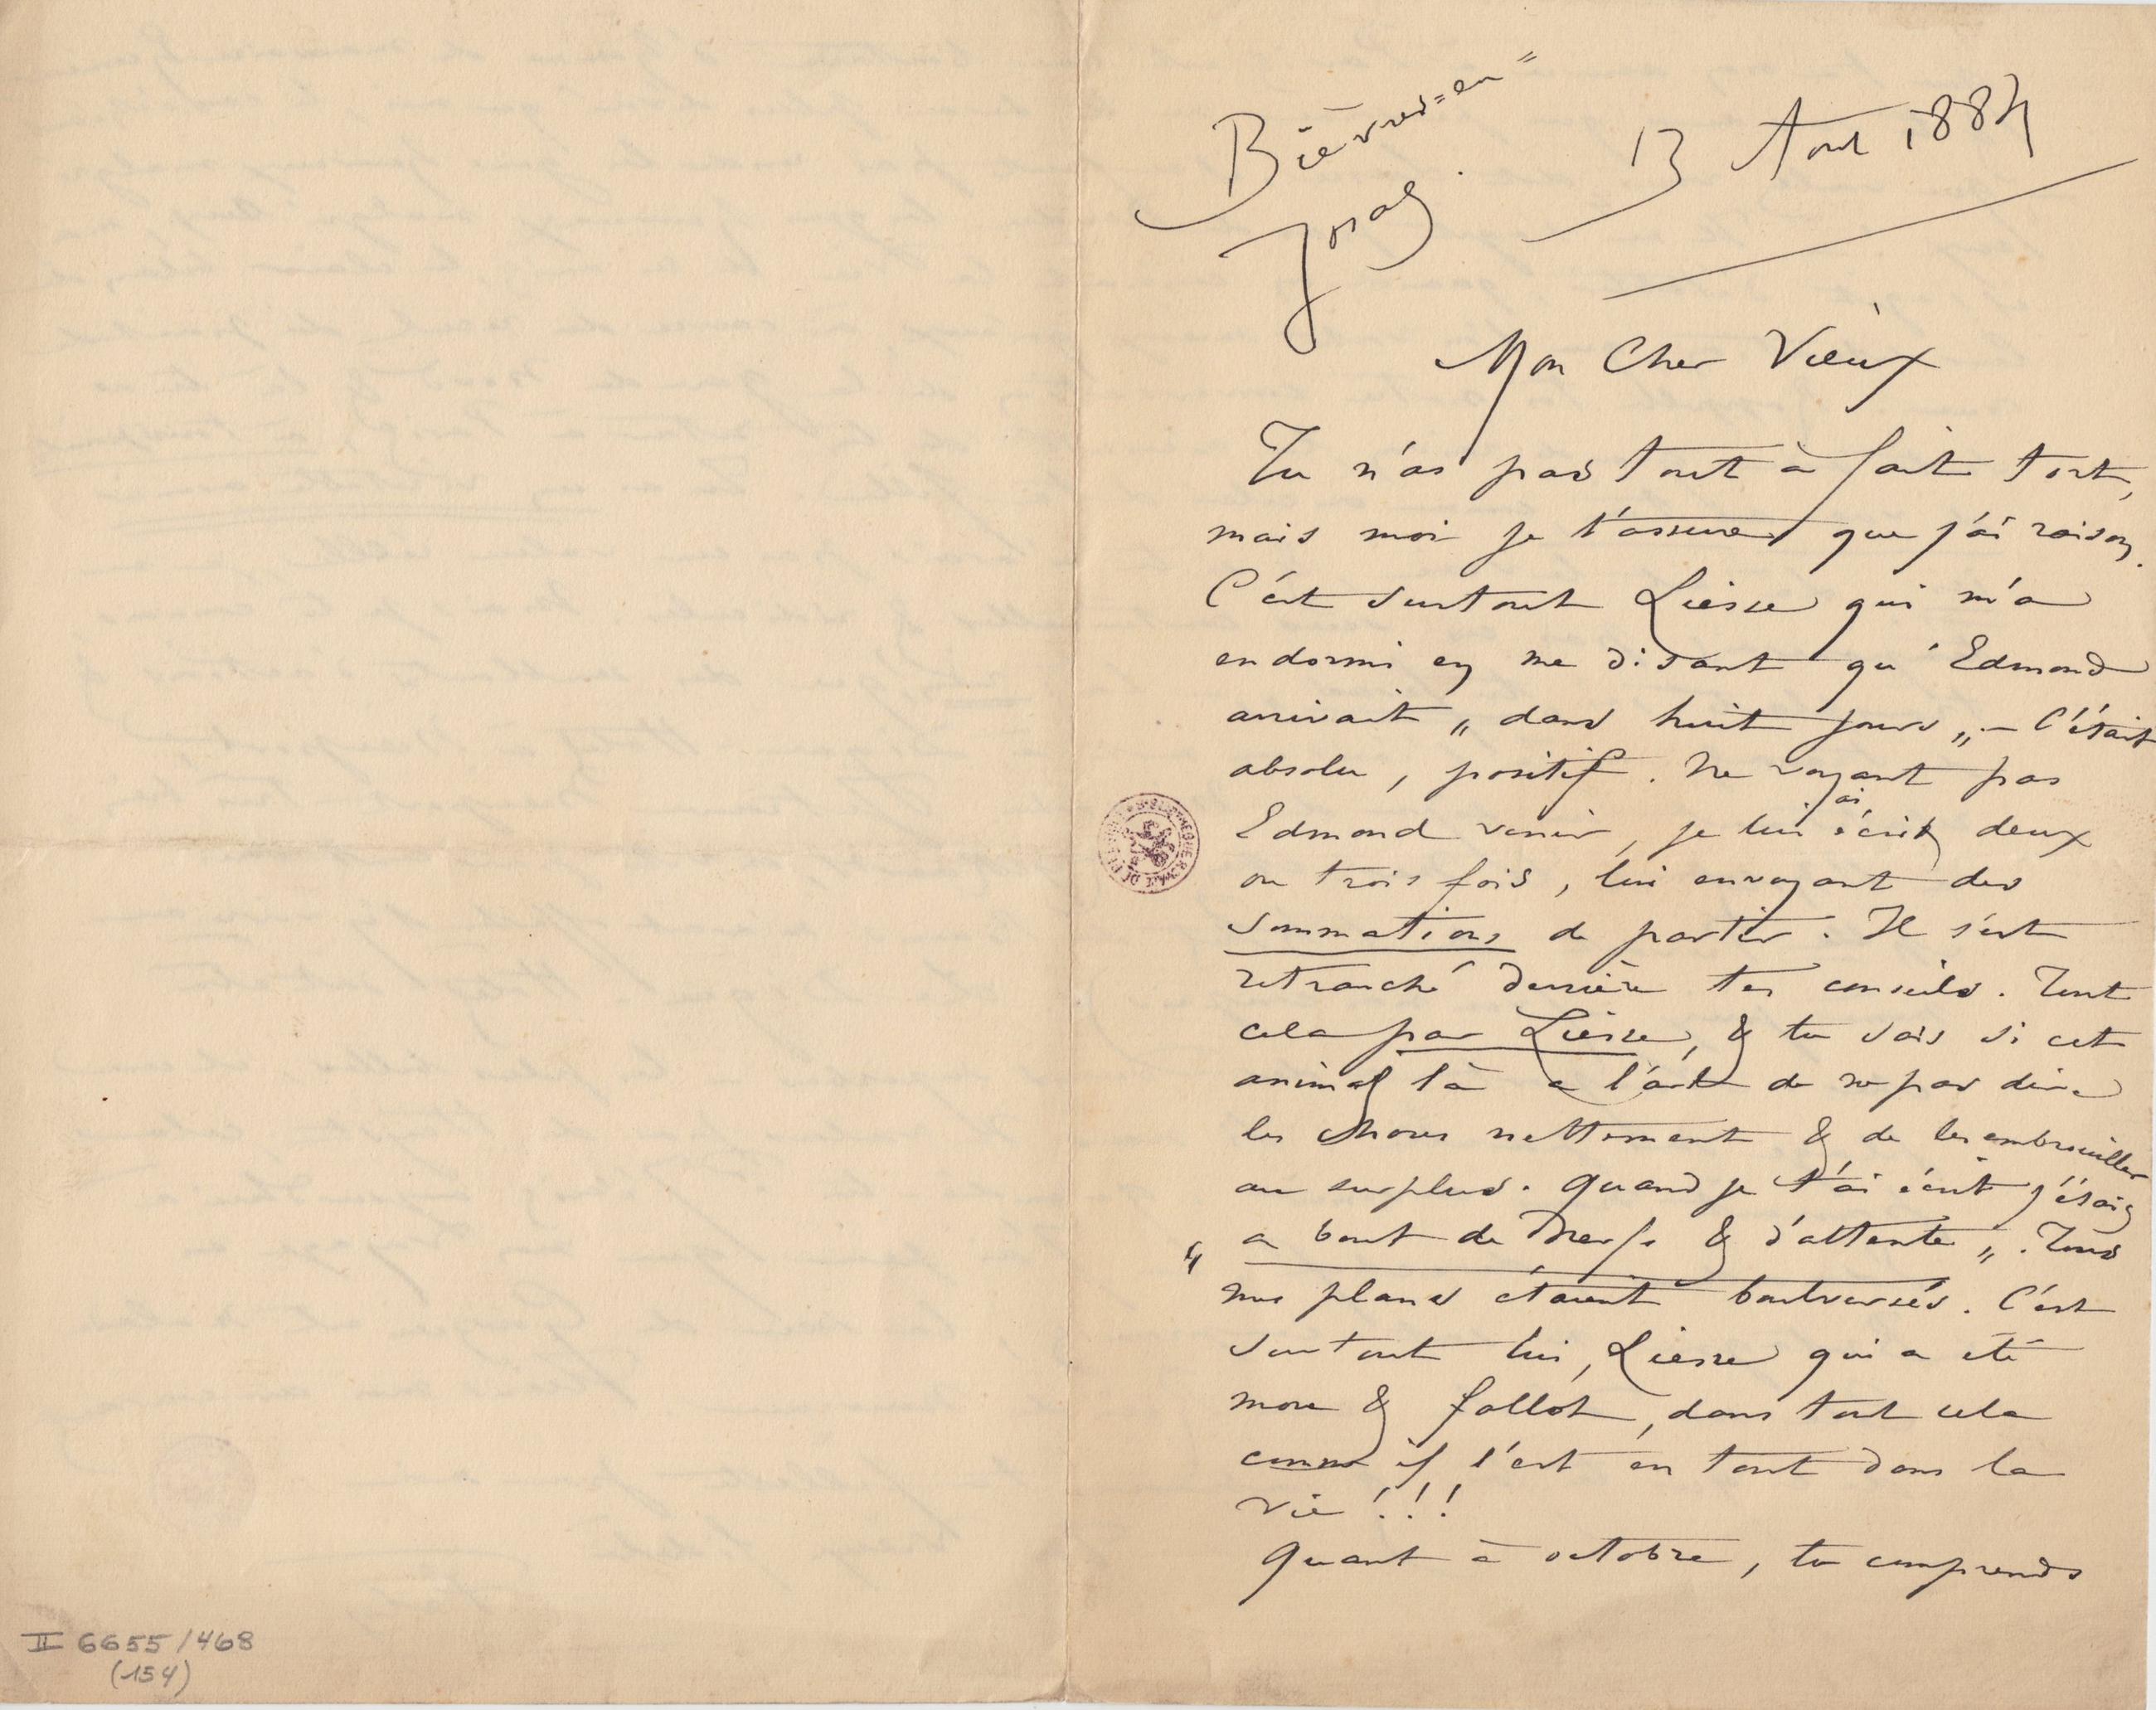 Bièvres=en=
Josas.
13 Aout 1884
Mon Cher Vieux
Tu n'as pas tout à fait tort,
mais moi je t'assure que j'ai raison.
C'est surtout Liesse qui m'a
endormi en me disant qu'Edmond
arrivait „ dans huit jours „ – C'était
absolu, positif. Ne voyant pas
Edmond venir, je lui ai écrit deux
ou trois fois, lui envoyant des
sommations de partir. Il s'est
retranché derrière tes conseils. Tout
cela par Liesse, & tu sais si cet
animal là a l'art de ne pas dire
les choses nettement & de les embrouiller
au surplus. Quand je t'ai écrit j'étais
„ a bout de nerfs & d'attente „. Tous
mes plans étaient boulversés. C'est
surtout lui, Liesse qui a été
mou & fallot, dans tout cela
comme il l'est en tout dans la
vie !!!
Quant à octobre, tu comprends
II 6655/468
(154)